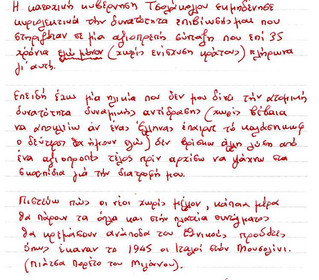 Η κατοχική κυβέρνηση Τσολάκογλου εκμηδένισε
κυριολεκτικά την δυνατότητα επιβίωσής μου που
στηριζόταν σε μία αξιοπρεπή σύνταξη που επί 35
χρόνια εγώ μόνον (χωρίς ενίσχυση κράτους) πλήρωνα
γι' αυτή.
Επειδή έχω μία ηλικία που δεν μου δίνει την ατομική
δυνατότητα δυναμικής αντίδρασης (χωρίς βέβαια
να αποκλείω αν ένας Έλληνας έπαιρνε το καλάσνικωφ
ο δεύτερος θα ήμουν εγώ) δεν βρίσκω άλλη λύση από
ένα αξιοπρεπές τέλος πριν αρχίσω να ψάχνω στα
σκουπίδια για την διατροφή μου.
Πιστεύω πως οι νέοι χωρίς μέλλον, κάποια μέρα
θα πάρουν τα όπλα και στην πλατεία συντάγματος
θα κρεμάσουν ανάποδα τους εθνικούς προδότες
όπως έκαναν το 1945 οι Ιταλοί στον Μουσολίνι.
(πιάτσα Πορέτο του Μιλάνου).